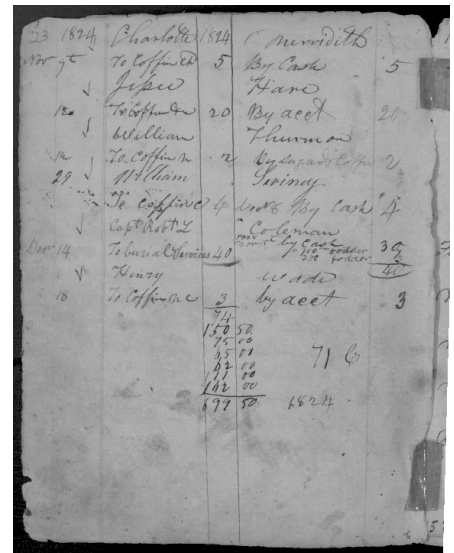 23 1824 Charlotte 1824 Merridith
Nov 9th To Coffin &c 5 By Cash 5
Jesse Hare
12 To Coffin &c 20 By acct 20
William Thurmon
To Coffin 2 By sugar & Coffee 2
29 William
To Coffin &c 4 By Cash 4
Capt Robt L Coleman
Decr 14 To burial Services 40 by Cash 30
fodder
500 fodder
40
Henry Wade
18 To Coffin &c 3 by acct 3
74
150 50
75 00
65 00
62 00
00
142 00
71 6
699 50 1824